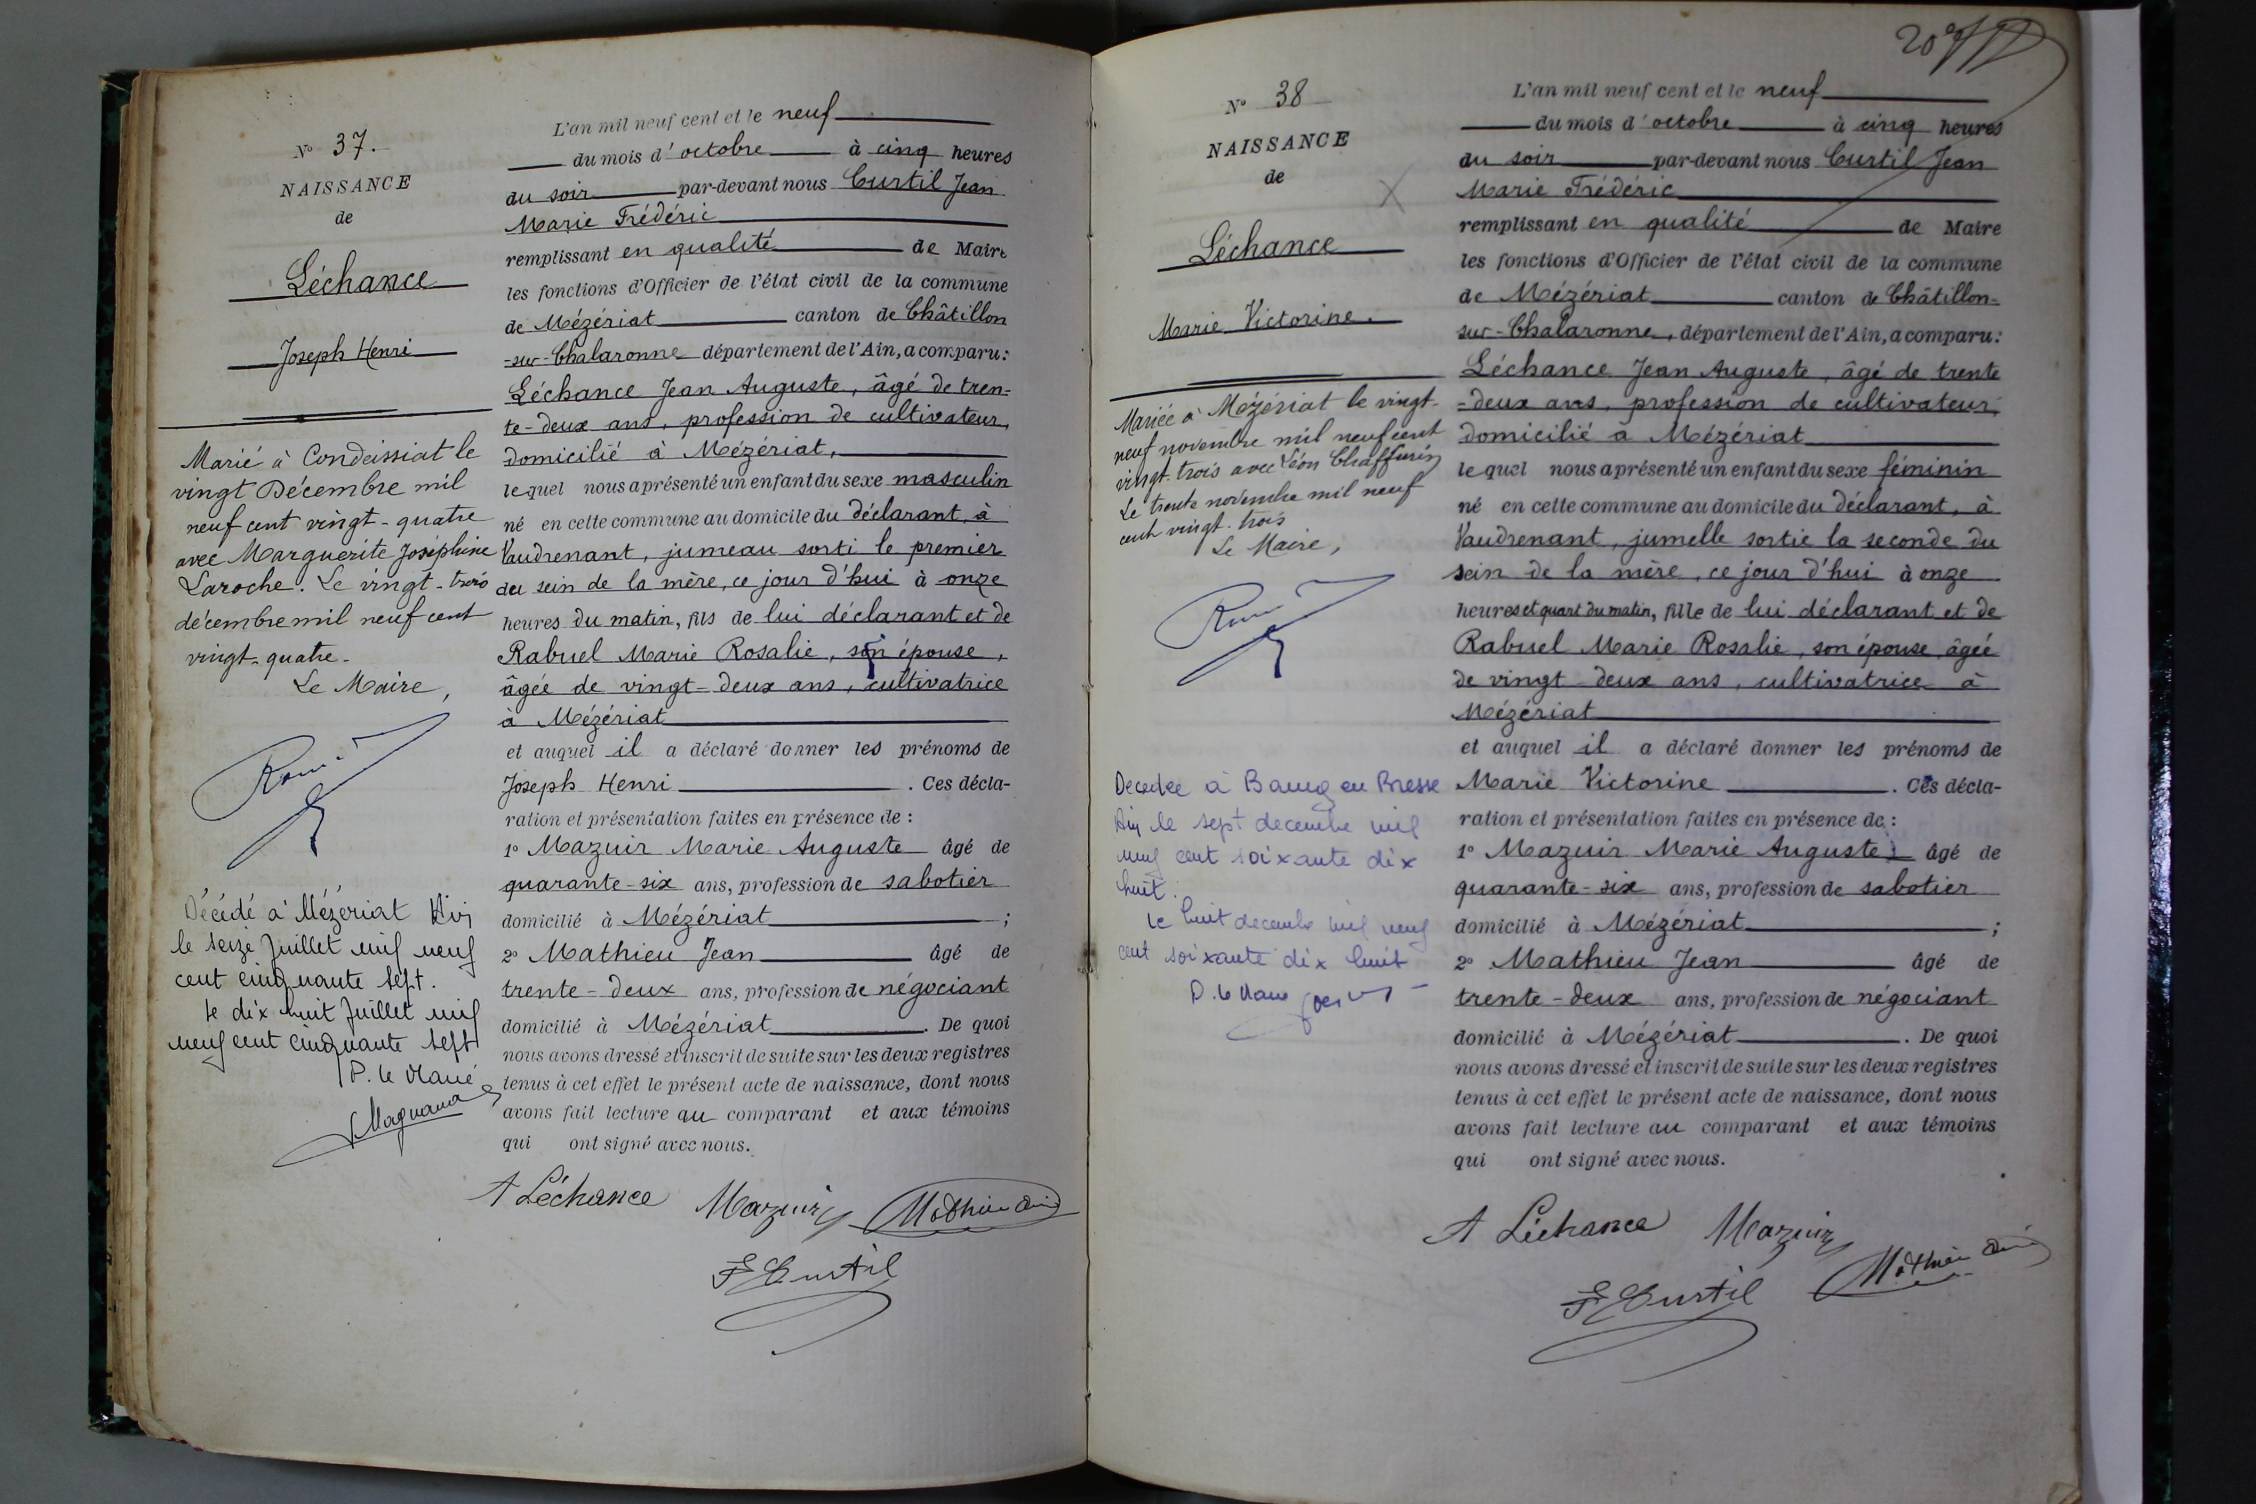 N° 37.
NAISSANCE
de
Léchance
Joseph Henri
Marié à Condeissiat le
vingt Décembre mil
neuf cent vingt-quatre
avec Marguerite Joséphine
Laroche. Le vingt-trois
décembre mil neuf cent
vingt-quatre.
Le Maire,
Décédé à Mézériat Ain
le seize Juillet mil neuf
cent cinquante sept.
Le dix huit Juillet mil
neuf cent cinquante sept
P. le Maire
L'an mil neuf cent et le neuf
du mois d'octobre à cinq heures
du soir par-devant nous Curtil Jean
Marie Frédéric
remplissant en qualité de Maire
les fonctions d'Officier de l'état civil de la commune
de Mézériat canton de Châtillon
-sur-Chalaronne département de l'Ain, a comparu:
Léchance Jean Auguste, âgé de tren-
te-deux ans, profession de cultivateur,
domicilié à Mézériat,
lequel nous a présenté un enfant du sexe masculin
né en cette commune au domicile du déclarant, à
Vaudrenant, jumeau sorti le premier
du sein de la mère, ce jour d'hui à onze
heures du matin, fils de lui déclarant et de
Rabuel Marie Rosalie, son épouse,
âgée de vingt-deux ans, cultivatrice
à Mézériat
et auquel il a déclaré donner les prénoms de
Joseph Henri. Ces décla-
ration et présentation faites en présence de :
1° Mazuir Marie Auguste âgé de
quarante-six ans, profession de sabotier
domicilié à Mézériat ;
2° Mathieu Jean âgé de
trente-deux ans, profession de négociant
domicilié à Mézériat. De quoi
nous avons dressé et inscrit de suite sur les deux registres
tenus à cet effet le présent acte de naissance, dont nous
avons fait lecture au comparant et aux témoins
qui ont signé avec nous.
A Léchance Mazuir Mathieu
F Curtil
N° 38
NAISSANCE
de
Léchance
Marie Victorine.
Mariée à Mézériat le vingt-
neuf novembre mil neuf cent
vingt-trois avec Léon Chaffurin
Le trente novembre mil neuf
cent vingt-trois
Le Maire,
Decedee à Bourg en Bresse
Ain le sept decembre mil
neuf cent soixante dix
huit.
Le huit decembre mil neuf
cent soixante dix huit
P. le Maire
20e
L'an mil neuf cent et le neuf
du mois d'octobre à cinq heures
du soir par-devant nous Curtil Jean
Marie Frédéric
remplissant en qualité de Maire
les fonctions d'Officier de l'état civil de la commune
de Mézériat canton de Châtillon-
sur-Chalaronne, département de l'Ain, a comparu:
Léchance Jean Auguste, âgé de trente
-deux ans, profession de cultivateur,
domicilié à Mézériat
lequel nous a présenté un enfant du sexe féminin
né en cette commune au domicile du déclarant, à
Vaudrenant, jumelle sortie la seconde du
sein de la mère, ce jour d'hui à onze
heures et quart du matin, fille de lui déclarant et de
Rabuel Marie Rosalie, son épouse, âgée
de vingt-deux ans, cultivatrice à
Mézériat
et auquel il a déclaré donner les prénoms de
Marie Victorine. Ces décla-
ration et présentation faites en présence de :
1° Mazuir Marie Auguste âgé de
quarante-six ans, profession de sabotier
domicilié à Mézériat ;
2° Mathieu Jean âgé de
trente-deux ans, profession de négociant
domicilié à Mézériat. De quoi
nous avons dressé et inscrit de suite sur les deux registres
tenus à cet effet le présent acte de naissance, dont nous
avons fait lecture au comparant et aux témoins
qui ont signé avec nous.
A Léchance Mazuir
F Curtil Mathieu